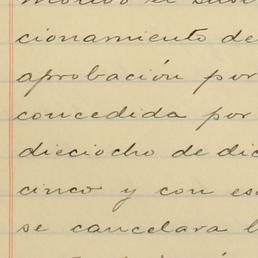 cionamiento de
aprobación por
concedida por
dieciocho de dic
cinco y con es
se cancelara l